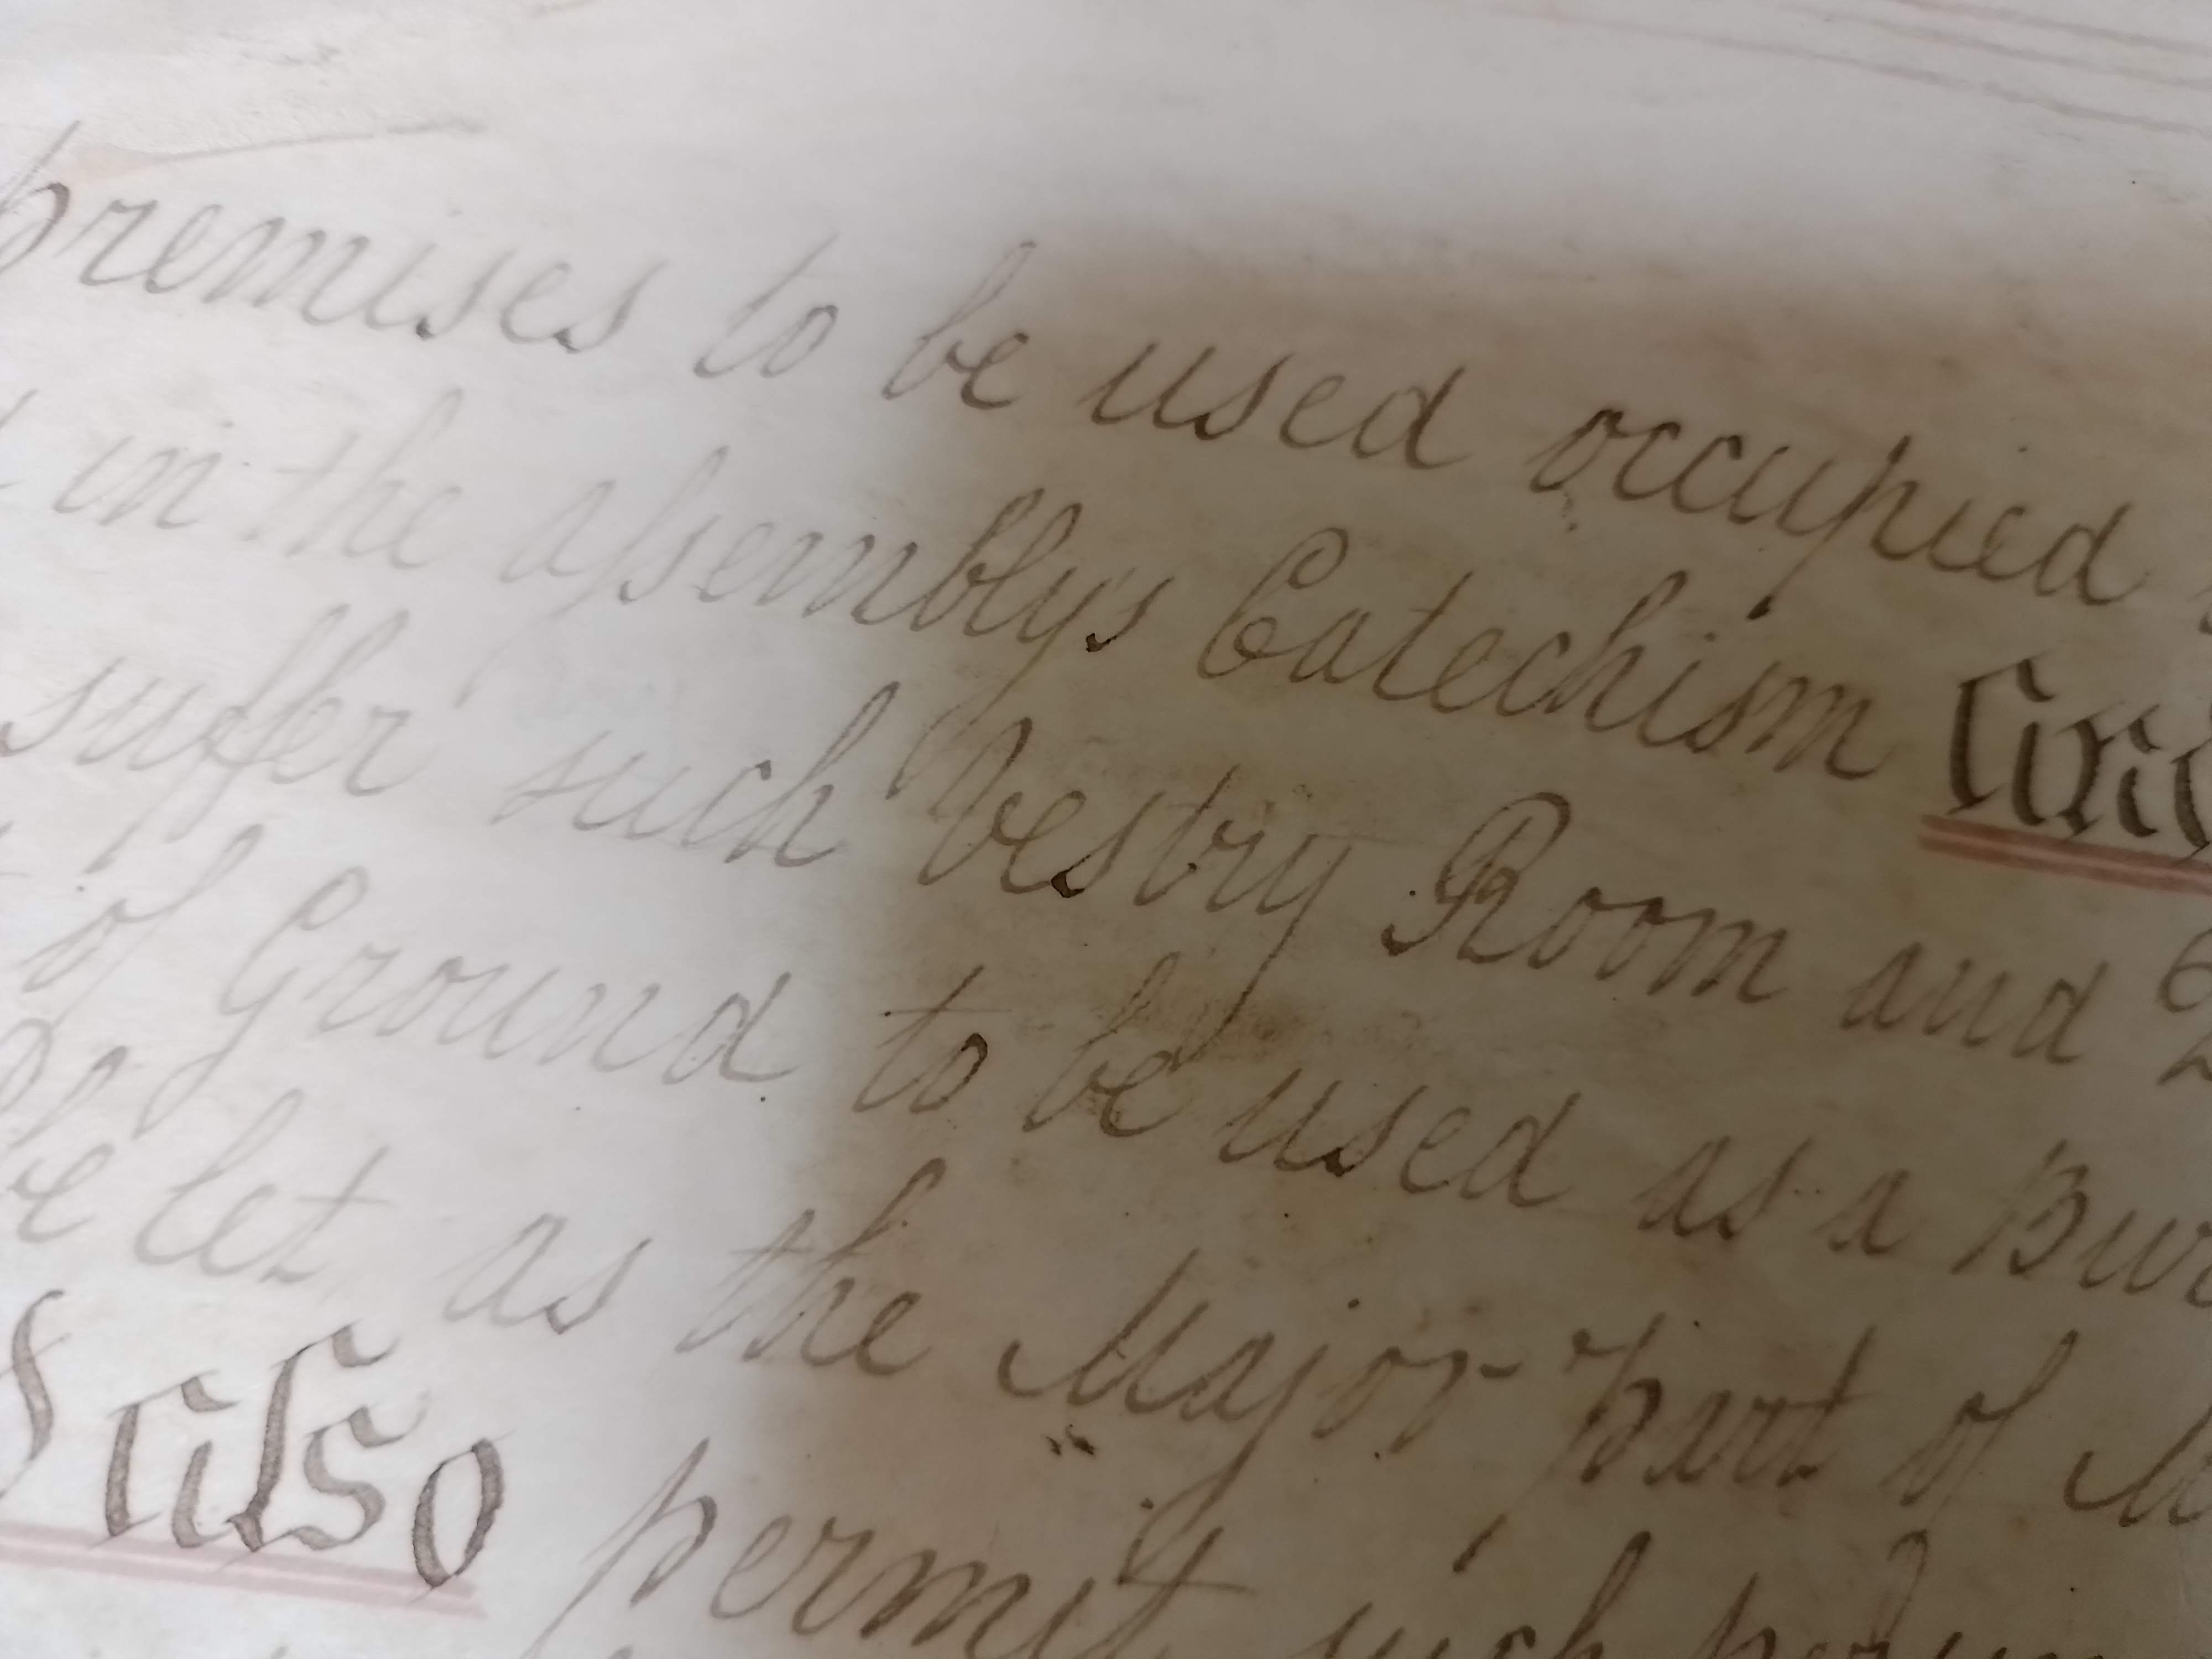 premises to be used occupied
in the assemblys Catechism And
suffer such Vestry Room and
of Ground to be used as a Bur
be let as the Major part of M
also permit such